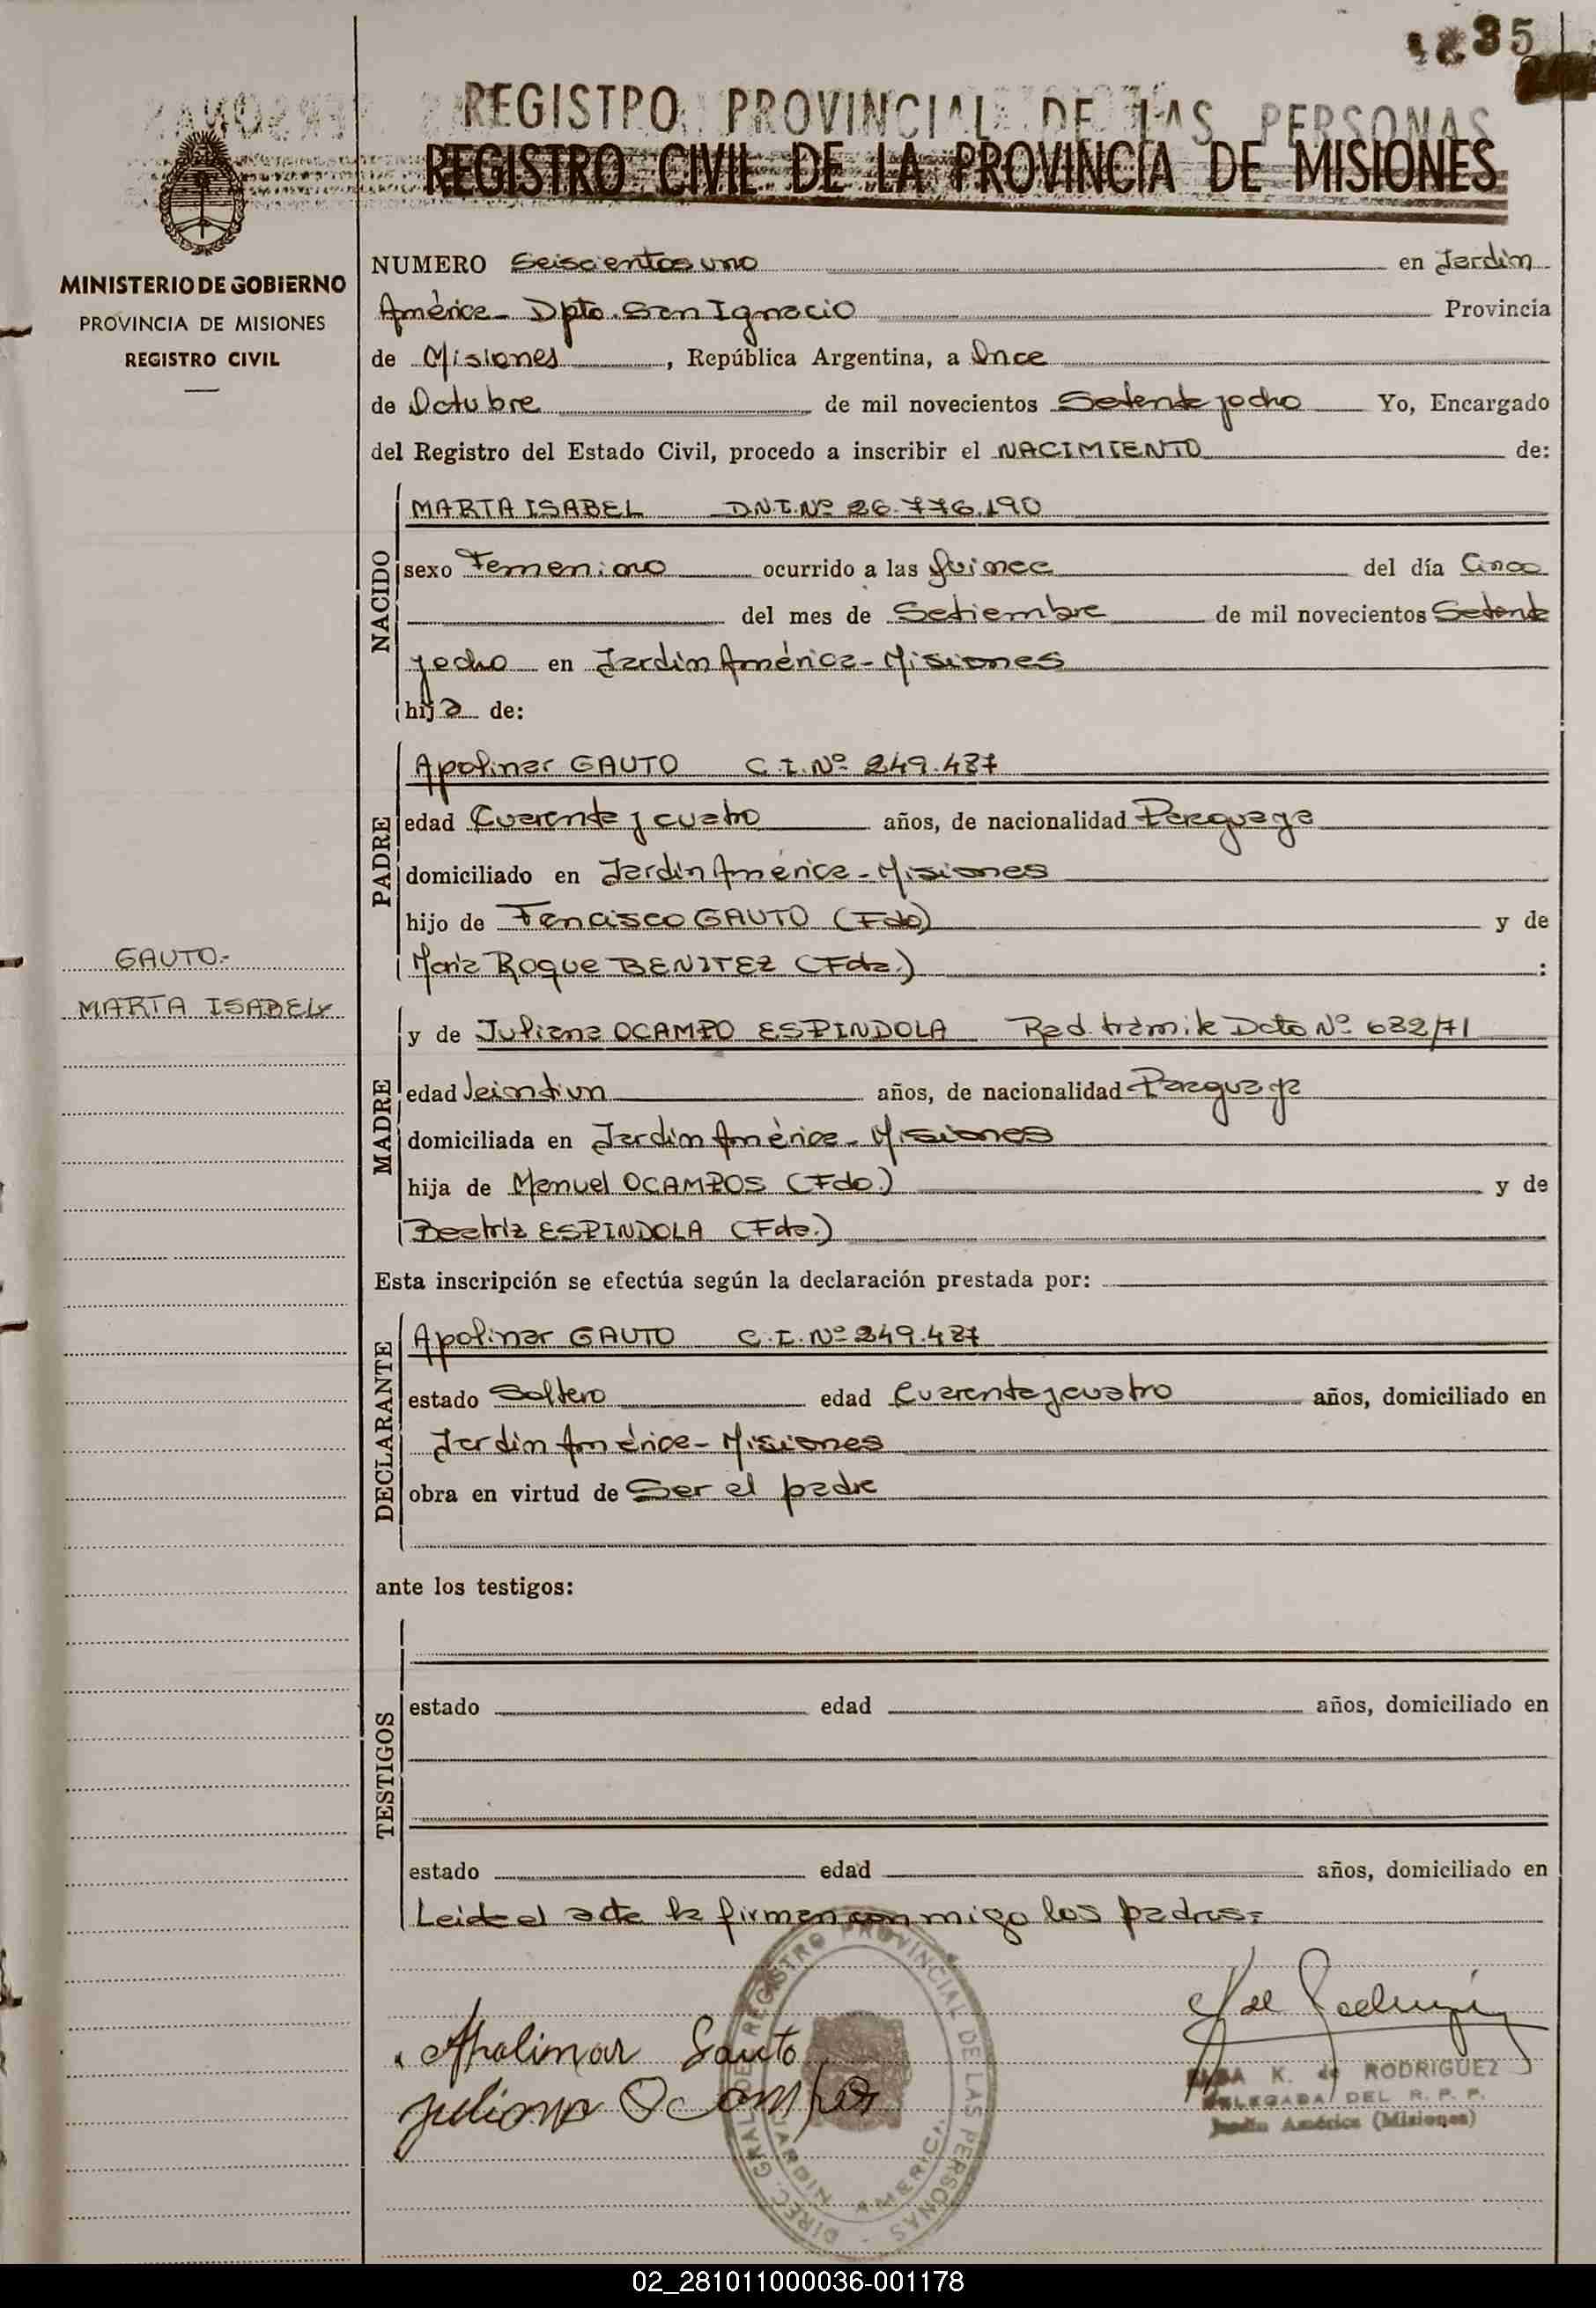 35
REGISTRO PROVINCIAL DE LAS PERSONAS
REGISTRO CIVIL DE LA PROVINCIA DE MISIONES
MINISTERIO DE GOBIERNO
PROVINCIA DE MISIONES
REGISTRO CIVIL
NUMERO Seiscientos uno en Jardin
América - Dpto. San Ignacio Provincia
de Misiones, República Argentina, a Once
de Octubre de mil novecientos Setenta y ocho Yo, Encargado
del Registro del Estado Civil, procedo a inscribir el NACIMIENTO de:
NACIDO
MARTA ISABEL D.N.I. Nº 26.776.190
sexo Femenino ocurrido a las Quince del día Cinco
del mes de Setiembre de mil novecientos Setenta
y ocho en Jardin América - Misiones
hija de:
PADRE
Apolinar GAUTO C.I. Nº 249.487
edad Cuarenta y cuatro años, de nacionalidad Paraguaya
domiciliado en Jardin América - Misiones
hijo de Francisco GAUTO (Fdo) y de
Maria Roque BENITEZ (Fda.) :
GAUTO.-
MARTA ISABEL
MADRE
y de Juliana OCAMPO ESPINDOLA Rad. trámite Dcto Nº 682/71
edad Veintiun años, de nacionalidad Paraguaya
domiciliada en Jardin América - Misiones
hija de Manuel OCAMPOS (Fdo.) y de
Beatriz ESPINDOLA (Fda.)
Esta inscripción se efectúa según la declaración prestada por:
DECLARANTE
Apolinar GAUTO C.I. Nº 249.487
estado Soltero edad Cuarenta y cuatro años, domiciliado en
Jardin América - Misiones
obra en virtud de Ser el padre
ante los testigos:
TESTIGOS
estado edad años, domiciliado en
estado edad años, domiciliado en
Leida el acta la firman conmigo los padres.-
Apolinar Gauto
Juliana Ocampos
DIREC. GRAL. DEL REGISTRO PROVINCIAL DE LAS PERSONAS
JARDIN AMERICA
K. de RODRIGUEZ
DELEGADA DEL R. P. P.
Jardín América (Misiones)
02_281011000036-001178